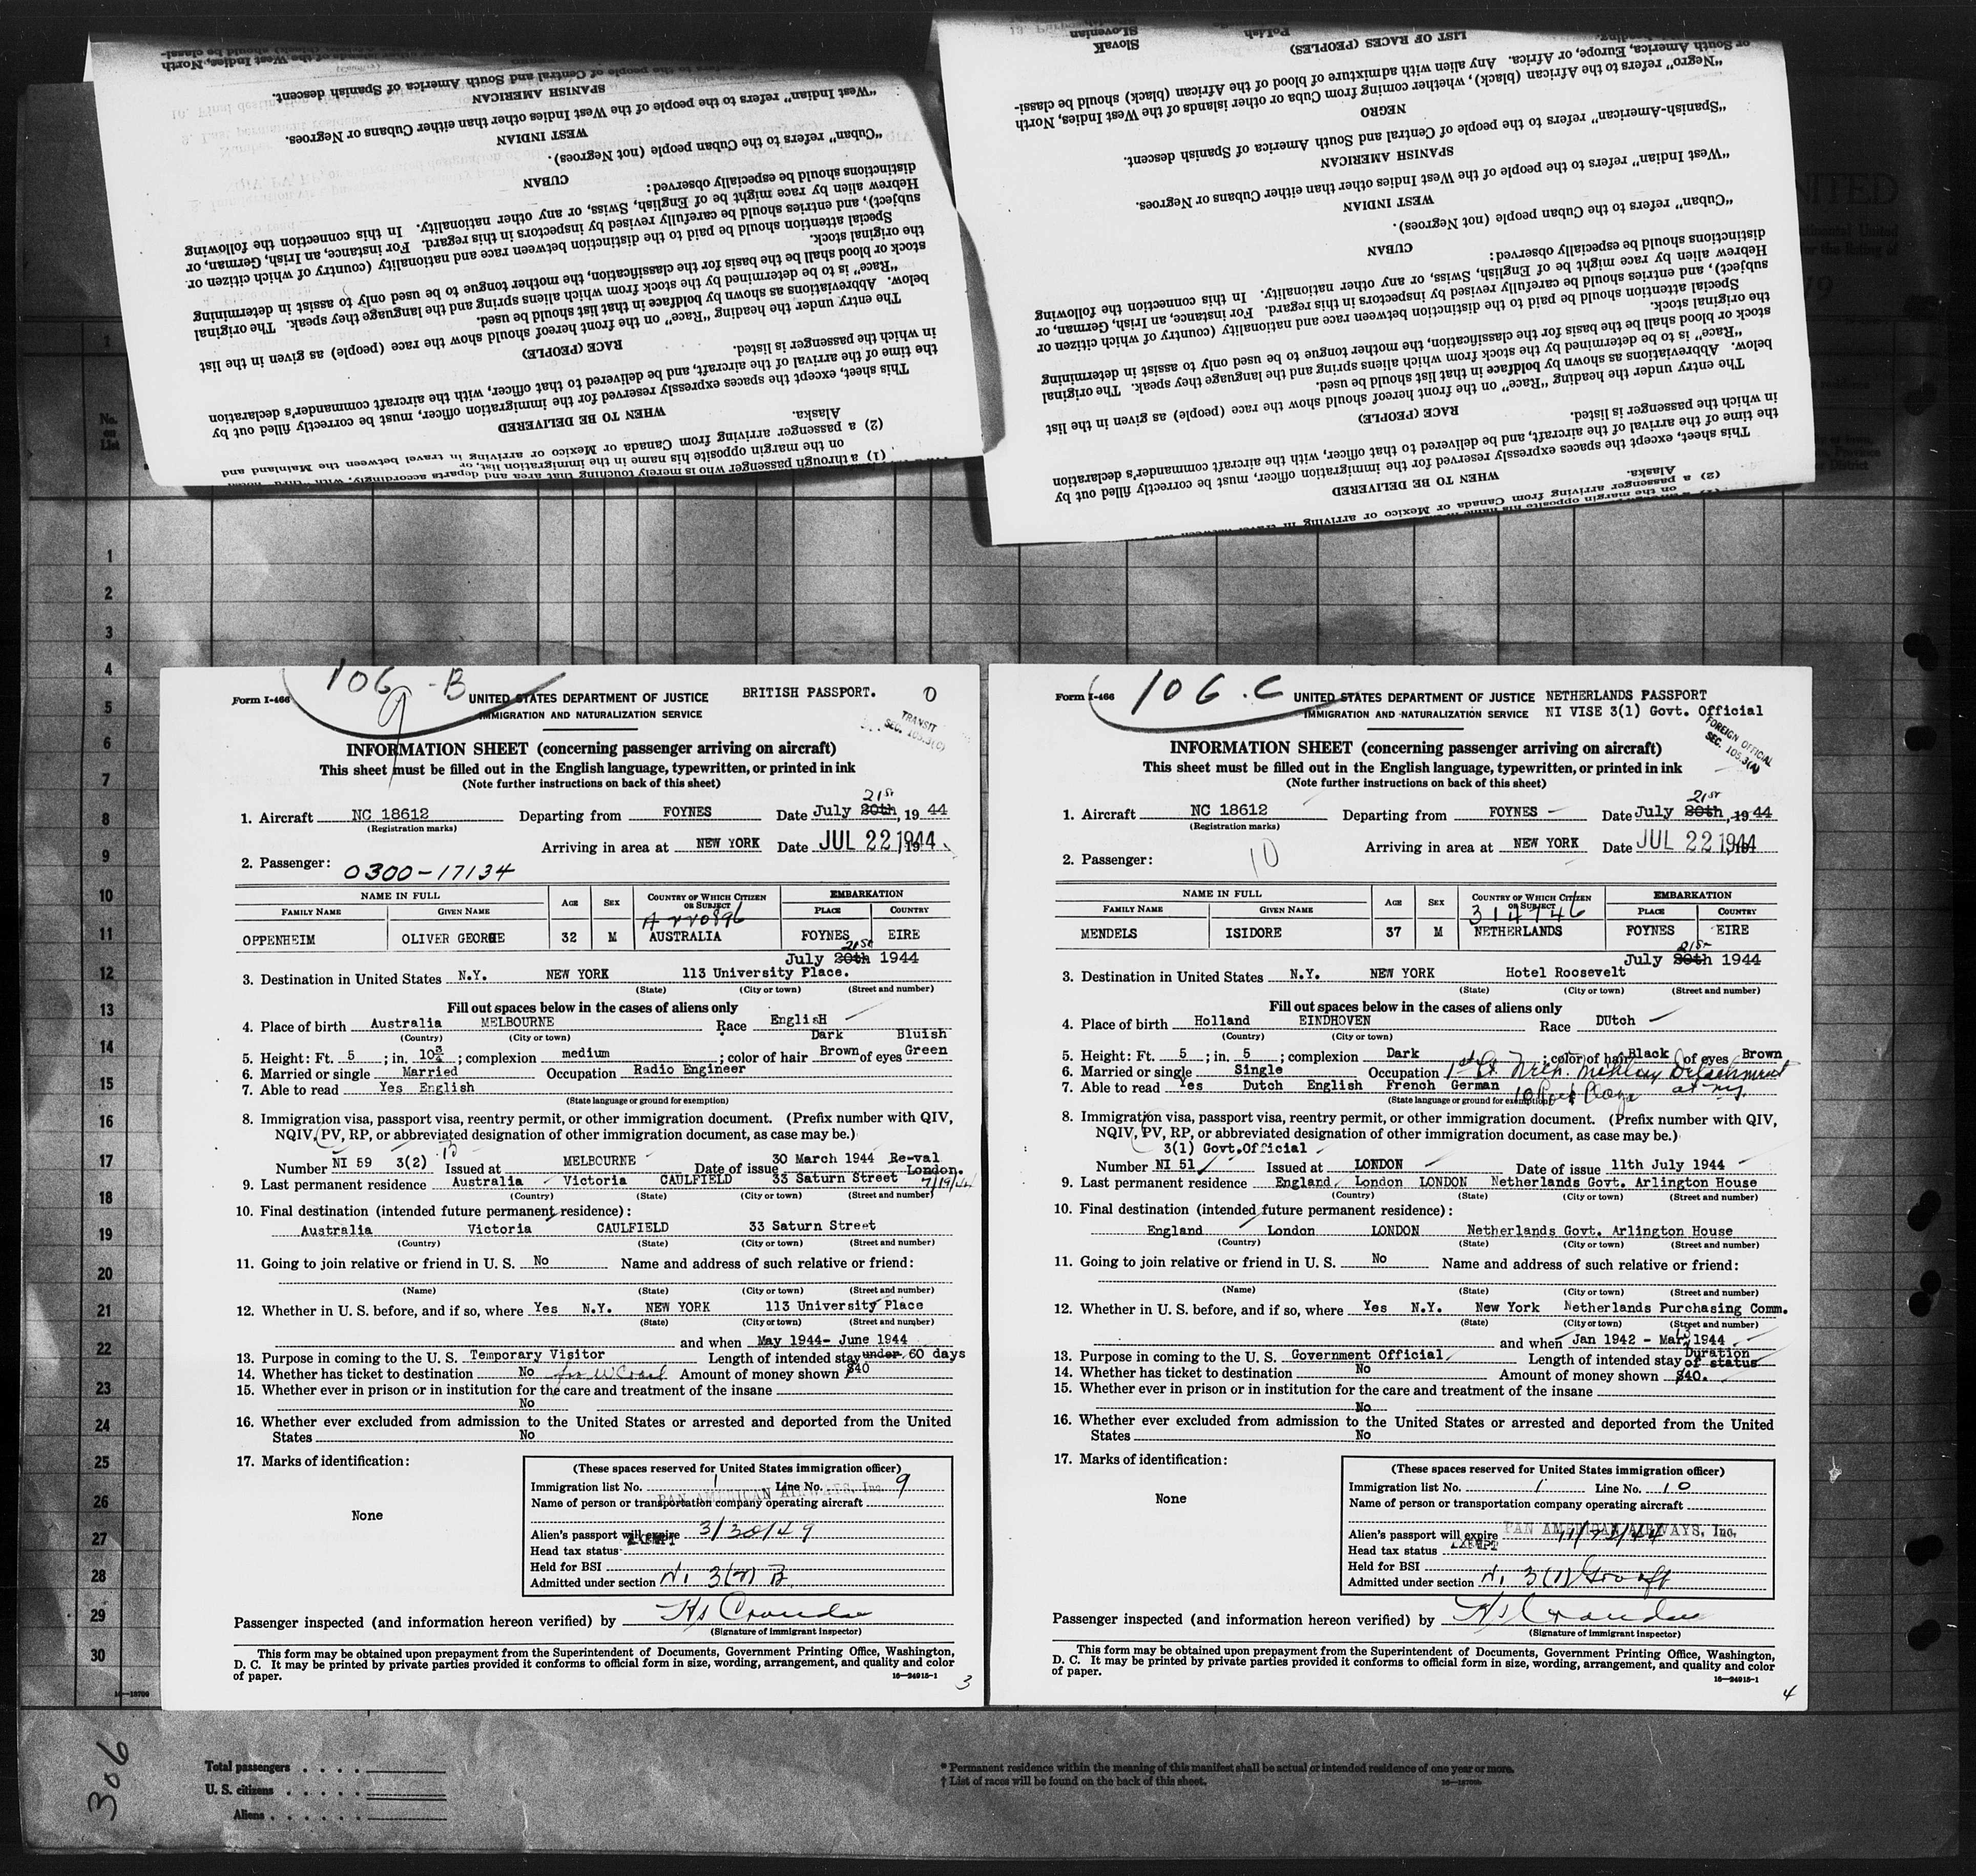 Slovak
Slovenian
Polish
LIST OF RACES (PEOPLES)
"Negro" refers to the African (black), whether coming from Cuba or other islands of the West Indies, North
or South America, Europe, or Africa. Any alien with admixture of blood of the African (black) should be classi-
NEGRO
"Spanish-American" refers to the people of Central and South America of Spanish descent.
SPANISH AMERICAN
"West Indian" refers to the people of the West Indies other than either Cubans or Negroes.
WEST INDIAN
"Cuban" refers to the Cuban people (not Negroes).
CUBAN
distinctions should be especially observed:
Hebrew alien by race might be of English, Swiss, or any other nationality. In this connection the following
subject), and entries should be carefully revised by inspectors in this regard. For instance, an Irish, German, or
Special attention should be paid to the distinction between race and nationality (country of which citizen or
the original stock.
stock or blood shall be the basis for the classification, the mother tongue to be used only to assist in determining
"Race" is to be determined by the stock from which aliens spring and the language they speak. The original
below. Abbreviations as shown by boldface in that list should be used.
The entry under the heading "Race" on the front hereof should show the race (people) as given in the list
RACE (PEOPLE)
in which the passenger is listed.
the time of the arrival of the aircraft, and be delivered to that officer, with the aircraft commander's declaration
This sheet, except the spaces expressly reserved for the immigration officer, must be correctly filled out by
WHEN TO BE DELIVERED
Alaska.
(2) a passenger arriving from Canada or Mexico or arriving in travel between the Mainland and
on the margin opposite his name in the immigration list, or
(1) a through passenger who is merely touching that area and departs accordingly, with
No.
on
List
1
2
3
4
5
6
7
8
9
10
11
12
13
14
15
16
17
18
19
20
21
22
23
24
25
26
27
28
29
30
106 - B
Form I-466
UNITED STATES DEPARTMENT OF JUSTICE
BRITISH PASSPORT.
0
IMMIGRATION AND NATURALIZATION SERVICE
TRANSIT
SEC. 105.3(C)
INFORMATION SHEET (concerning passenger arriving on aircraft)
This sheet must be filled out in the English language, typewritten, or printed in ink
(Note further instructions on back of this sheet)
21st
1. Aircraft NC 18612 Departing from FOYNES Date July 20th, 19 44
(Registration marks)
Arriving in area at NEW YORK Date JUL 22 1944
2. Passenger: 0300-17134
NAME IN FULL AGE SEX COUNTRY OF WHICH CITIZEN OR SUBJECT EMBARKATION
FAMILY NAME GIVEN NAME PLACE COUNTRY
OPPENHEIM OLIVER GEORGE 32 M AUSTRALIA FOYNES EIRE
21st
July 20th 1944
3. Destination in United States N.Y. NEW YORK 113 University Place.
(State) (City or town) (Street and number)
Fill out spaces below in the cases of aliens only
4. Place of birth Australia MELBOURNE Race EnglisH
(Country) (City or town) Dark Bluish
5. Height: Ft. 5 ; in. 10¾ ; complexion medium ; color of hair Brown of eyes Green
6. Married or single Married Occupation Radio Engineer
7. Able to read Yes English
(State language or ground for exemption)
8. Immigration visa, passport visa, reentry permit, or other immigration document. (Prefix number with QIV,
NQIV, PV, RP, or abbreviated designation of other immigration document, as case may be.)
Number NI 59 3(2) Issued at MELBOURNE Date of issue 30 March 1944 Re-val
London.
9. Last permanent residence Australia Victoria CAULFIELD 33 Saturn Street 7/19/44
(Country) (State) (City or town) (Street and number)
10. Final destination (intended future permanent residence):
Australia Victoria CAULFIELD 33 Saturn Street
(Country) (State) (City or town) (Street and number)
11. Going to join relative or friend in U. S. No Name and address of such relative or friend:
(Name) (State) (City or town) (Street and number)
12. Whether in U. S. before, and if so, where Yes N.Y. NEW YORK 113 University Place
(State) (City or town) (Street and number)
and when May 1944- June 1944
13. Purpose in coming to the U. S. Temporary Visitor Length of intended stay under 60 days
14. Whether has ticket to destination No Amount of money shown $40
15. Whether ever in prison or in institution for the care and treatment of the insane
No
16. Whether ever excluded from admission to the United States or arrested and deported from the United
States No
17. Marks of identification:
None
(These spaces reserved for United States immigration officer)
Immigration list No. 1 Line No. 9
PAN AMERICAN AIRWAYS, Inc.
Name of person or transportation company operating aircraft
Alien's passport will expire 3/30/49
EXEMPT
Head tax status
Held for BSI
Admitted under section
Passenger inspected (and information hereon verified) by
(Signature of immigrant inspector)
This form may be obtained upon prepayment from the Superintendent of Documents, Government Printing Office, Washington,
D. C. It may be printed by private parties provided it conforms to official form in size, wording, arrangement, and quality and color
of paper.
16—24915-1
3
106 . C
Form I-466
UNITED STATES DEPARTMENT OF JUSTICE NETHERLANDS PASSPORT
IMMIGRATION AND NATURALIZATION SERVICE NI VISE 3(1) Govt. Official
FOREIGN OFFICIAL
SEC. 105.3(A)
INFORMATION SHEET (concerning passenger arriving on aircraft)
This sheet must be filled out in the English language, typewritten, or printed in ink
(Note further instructions on back of this sheet)
21st
1. Aircraft NC 18612 Departing from FOYNES Date July 20th, 19 44
(Registration marks)
Arriving in area at NEW YORK Date JUL 22 1944
2. Passenger: 10
NAME IN FULL AGE SEX COUNTRY OF WHICH CITIZEN OR SUBJECT EMBARKATION
314746
FAMILY NAME GIVEN NAME PLACE COUNTRY
MENDELS ISIDORE 37 M NETHERLANDS FOYNES EIRE
21st
July 20th 1944
3. Destination in United States N.Y. NEW YORK Hotel Roosevelt
(State) (City or town) (Street and number)
Fill out spaces below in the cases of aliens only
4. Place of birth Holland EINDHOVEN Race DUtch
(Country) (City or town)
5. Height: Ft. 5 ; in. 5 ; complexion Dark ; color of hair Black of eyes Brown
6. Married or single Single Occupation 1st Lt Neth. Military Detachment
7. Able to read Yes Dutch English French German at NY
(State language or ground for exemption)
8. Immigration visa, passport visa, reentry permit, or other immigration document. (Prefix number with QIV,
NQIV, PV, RP, or abbreviated designation of other immigration document, as case may be.)
3(1) Govt.Official
Number NI 51 Issued at LONDON Date of issue 11th July 1944
9. Last permanent residence England London LONDON Netherlands Govt. Arlington House
(Country) (State) (City or town) (Street and number)
10. Final destination (intended future permanent residence):
England London LONDON Netherlands Govt. Arlington House
(Country) (State) (City or town) (Street and number)
11. Going to join relative or friend in U. S. No Name and address of such relative or friend:
(Name) (State) (City or town) (Street and number)
12. Whether in U. S. before, and if so, where Yes N.Y. New York Netherlands Purchasing Comm.
(State) (City or town) (Street and number)
and when Jan 1942 - Mar 1944
13. Purpose in coming to the U. S. Government Official Length of intended stay Duration of status
14. Whether has ticket to destination No Amount of money shown $40.
15. Whether ever in prison or in institution for the care and treatment of the insane
No
16. Whether ever excluded from admission to the United States or arrested and deported from the United
States No
17. Marks of identification:
None
(These spaces reserved for United States immigration officer)
Immigration list No. 1 Line No. 10
Name of person or transportation company operating aircraft
PAN AMERICAN AIRWAYS, Inc.
Alien's passport will expire
EXEMPT
Head tax status
Held for BSI
Admitted under section
Passenger inspected (and information hereon verified) by
(Signature of immigrant inspector)
This form may be obtained upon prepayment from the Superintendent of Documents, Government Printing Office, Washington,
D. C. It may be printed by private parties provided it conforms to official form in size, wording, arrangement, and quality and color
of paper.
16—24915-1
4
306
Total passengers
U. S. citizens
Aliens
* Permanent residence within the meaning of this manifest shall be actual or intended residence of one year or more.
† List of races will be found on the back of this sheet.